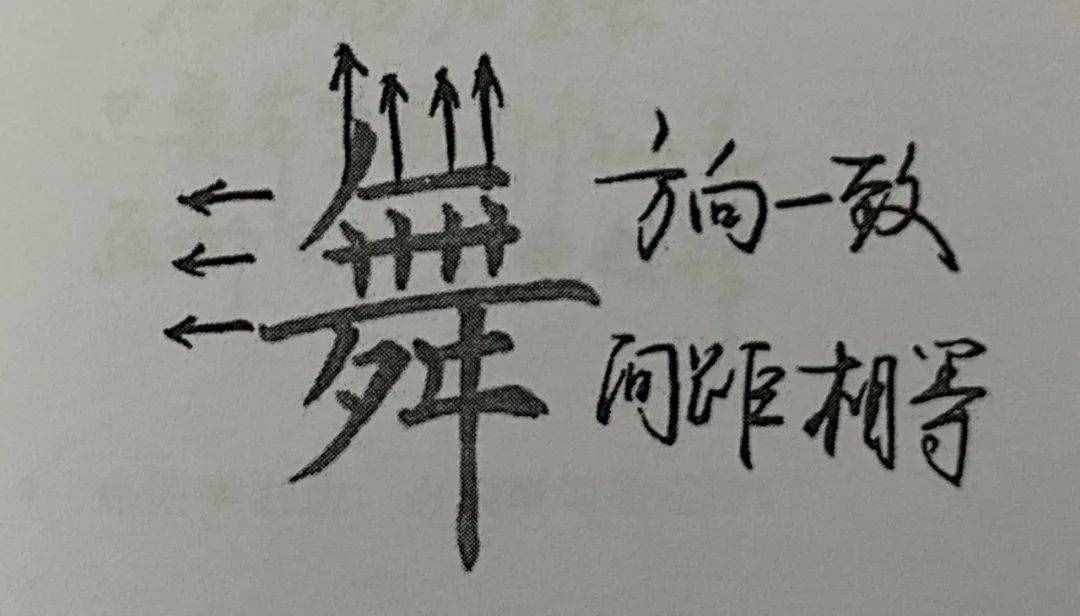 舞
方向一致
间距相等